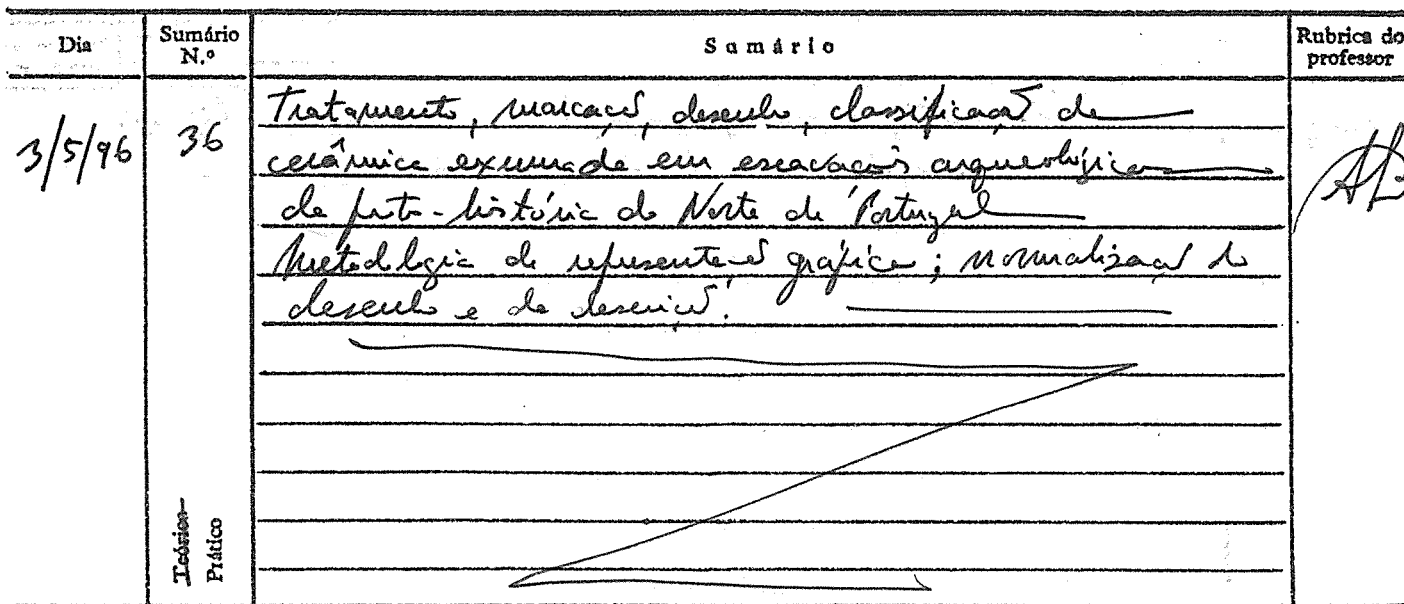 Dia
Sumário N.º
Sumário
Rubrica do professor
3/5/96
36
Tratamento, marcação, desenho, classificação de
cerâmica exumada em escavações arqueológicas
da proto-história do Norte de Portugal
Metodologia de representação gráfica; normalização do
desenho e da descrição.
Teórico-
Prático